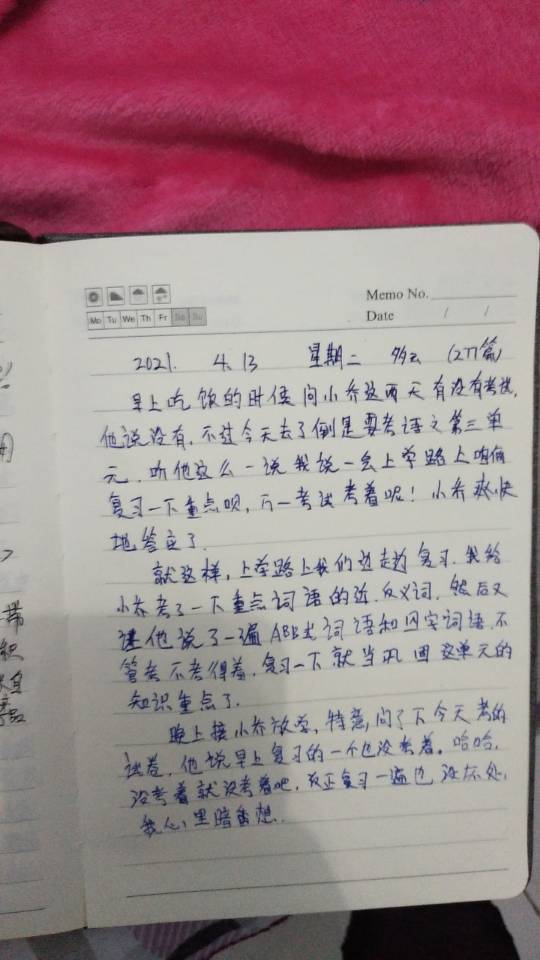 Memo No.
Mo Tu We Th Fr Sa Su
Date / /
2021. 4. 13 星期二 多云 (277篇)
早上吃饭的时候问小乔这两天有没有考试,
他说没有,不过今天去了倒是要考语文第三单
元.听他这么一说我说一会上学路上咱俩
复习一下重点呗,万一考试考着呢!小乔爽快
地答应了.
就这样,上学路上我们边走边复习.我给
小乔考了一下重点词语的近.反义词.然后又
让他说了一遍ABB式词语和四字词语,不
管考不考得着,复习一下就当巩固这单元的
知识重点了.
晚上接小乔放学,特意问了下今天考的
试卷,他说早上复习的一个也没考着.哈哈,
没考着就没考着吧,反正复习一遍也没坏处,
我心里暗自想.
带
织
品